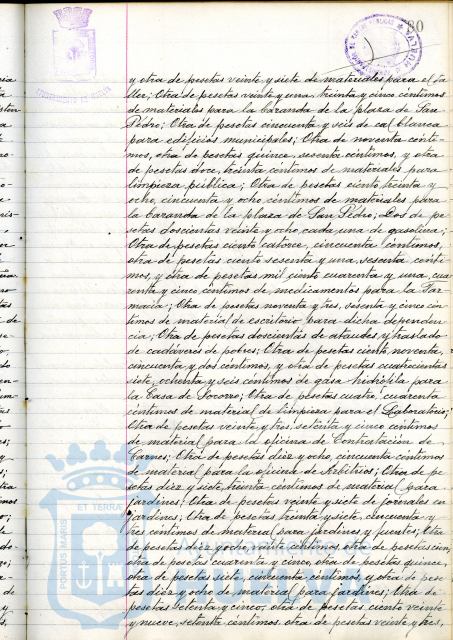 80
y otra de pesetas veinte y siete de materiales para el ta-
ller; Otra de pesetas veinte y una, treinta y cinco céntimos
de materiales para la baranda de la plaza de San
Pedro; Otra de pesetas cincuenta y seis de cal blanca
para edificios municipales; Otra de noventa cénti-
mos, otra de pesetas quince, sesenta céntimos, y otra
de pesetas doce, treinta céntimos de materiales para
limpieza pública; Otra de pesetas ciento treinta y
ocho, cincuenta y ocho céntimos de materiales para
la baranda de la plaza de San Pedro; Dos de pe-
setas doscientas veinte y ocho, cada una de gasolina;
Otra de pesetas ciento catorce, cincuenta céntimos,
otra de pesetas ciento sesenta y una, sesenta cénti-
mos, y otra de pesetas mil ciento cuarenta y una, cua-
renta y cinco céntimos de medicamentos para la Far-
macia; Otra de pesetas noventa y tres, sesenta y cinco cén-
timos de material de escritorio para dicha dependen-
cia; Otra de pesetas doscientas de ataudes, y traslado
de cadáveres de pobres; Otra de pesetas ciento noventa,
cincuenta y dos céntimos, y otra de pesetas cuatrocientas
siete, ochenta y seis céntimos de gasa hidrófila para
la Casa de Socorro; Otra de pesetas cuatro, cuarenta
céntimos de material de limpieza para el Laboratorio;
Otra de pesetas veinte y tres, setenta y cinco céntimos
de material para la oficina de Contratación de
Carnes; Otra de pesetas diez y ocho, cincuenta céntimos
de material para la oficina de Arbitrios; Otra de pe-
setas diez y siete, treinta céntimos de material para
jardines; Otra de pesetas veinte y siete de jornales en
jardines; Otra de pesetas treinta y siete, cincuenta y
tres céntimos de material para jardines y fuentes; Otra
de pesetas diez y ocho, veinte céntimos, otra de pesetas cien,
otra de pesetas cuarenta y cinco, otra de pesetas quince,
otra de pesetas siete, cincuenta céntimos, y otra de pese-
tas diez y ocho de material para jardines; Otra de
pesetas setenta y cinco, otra de pesetas ciento veinte
y nueve, setenta céntimos, otra de pesetas veinte y tres,
PORTUS MARIS ET TERRAE